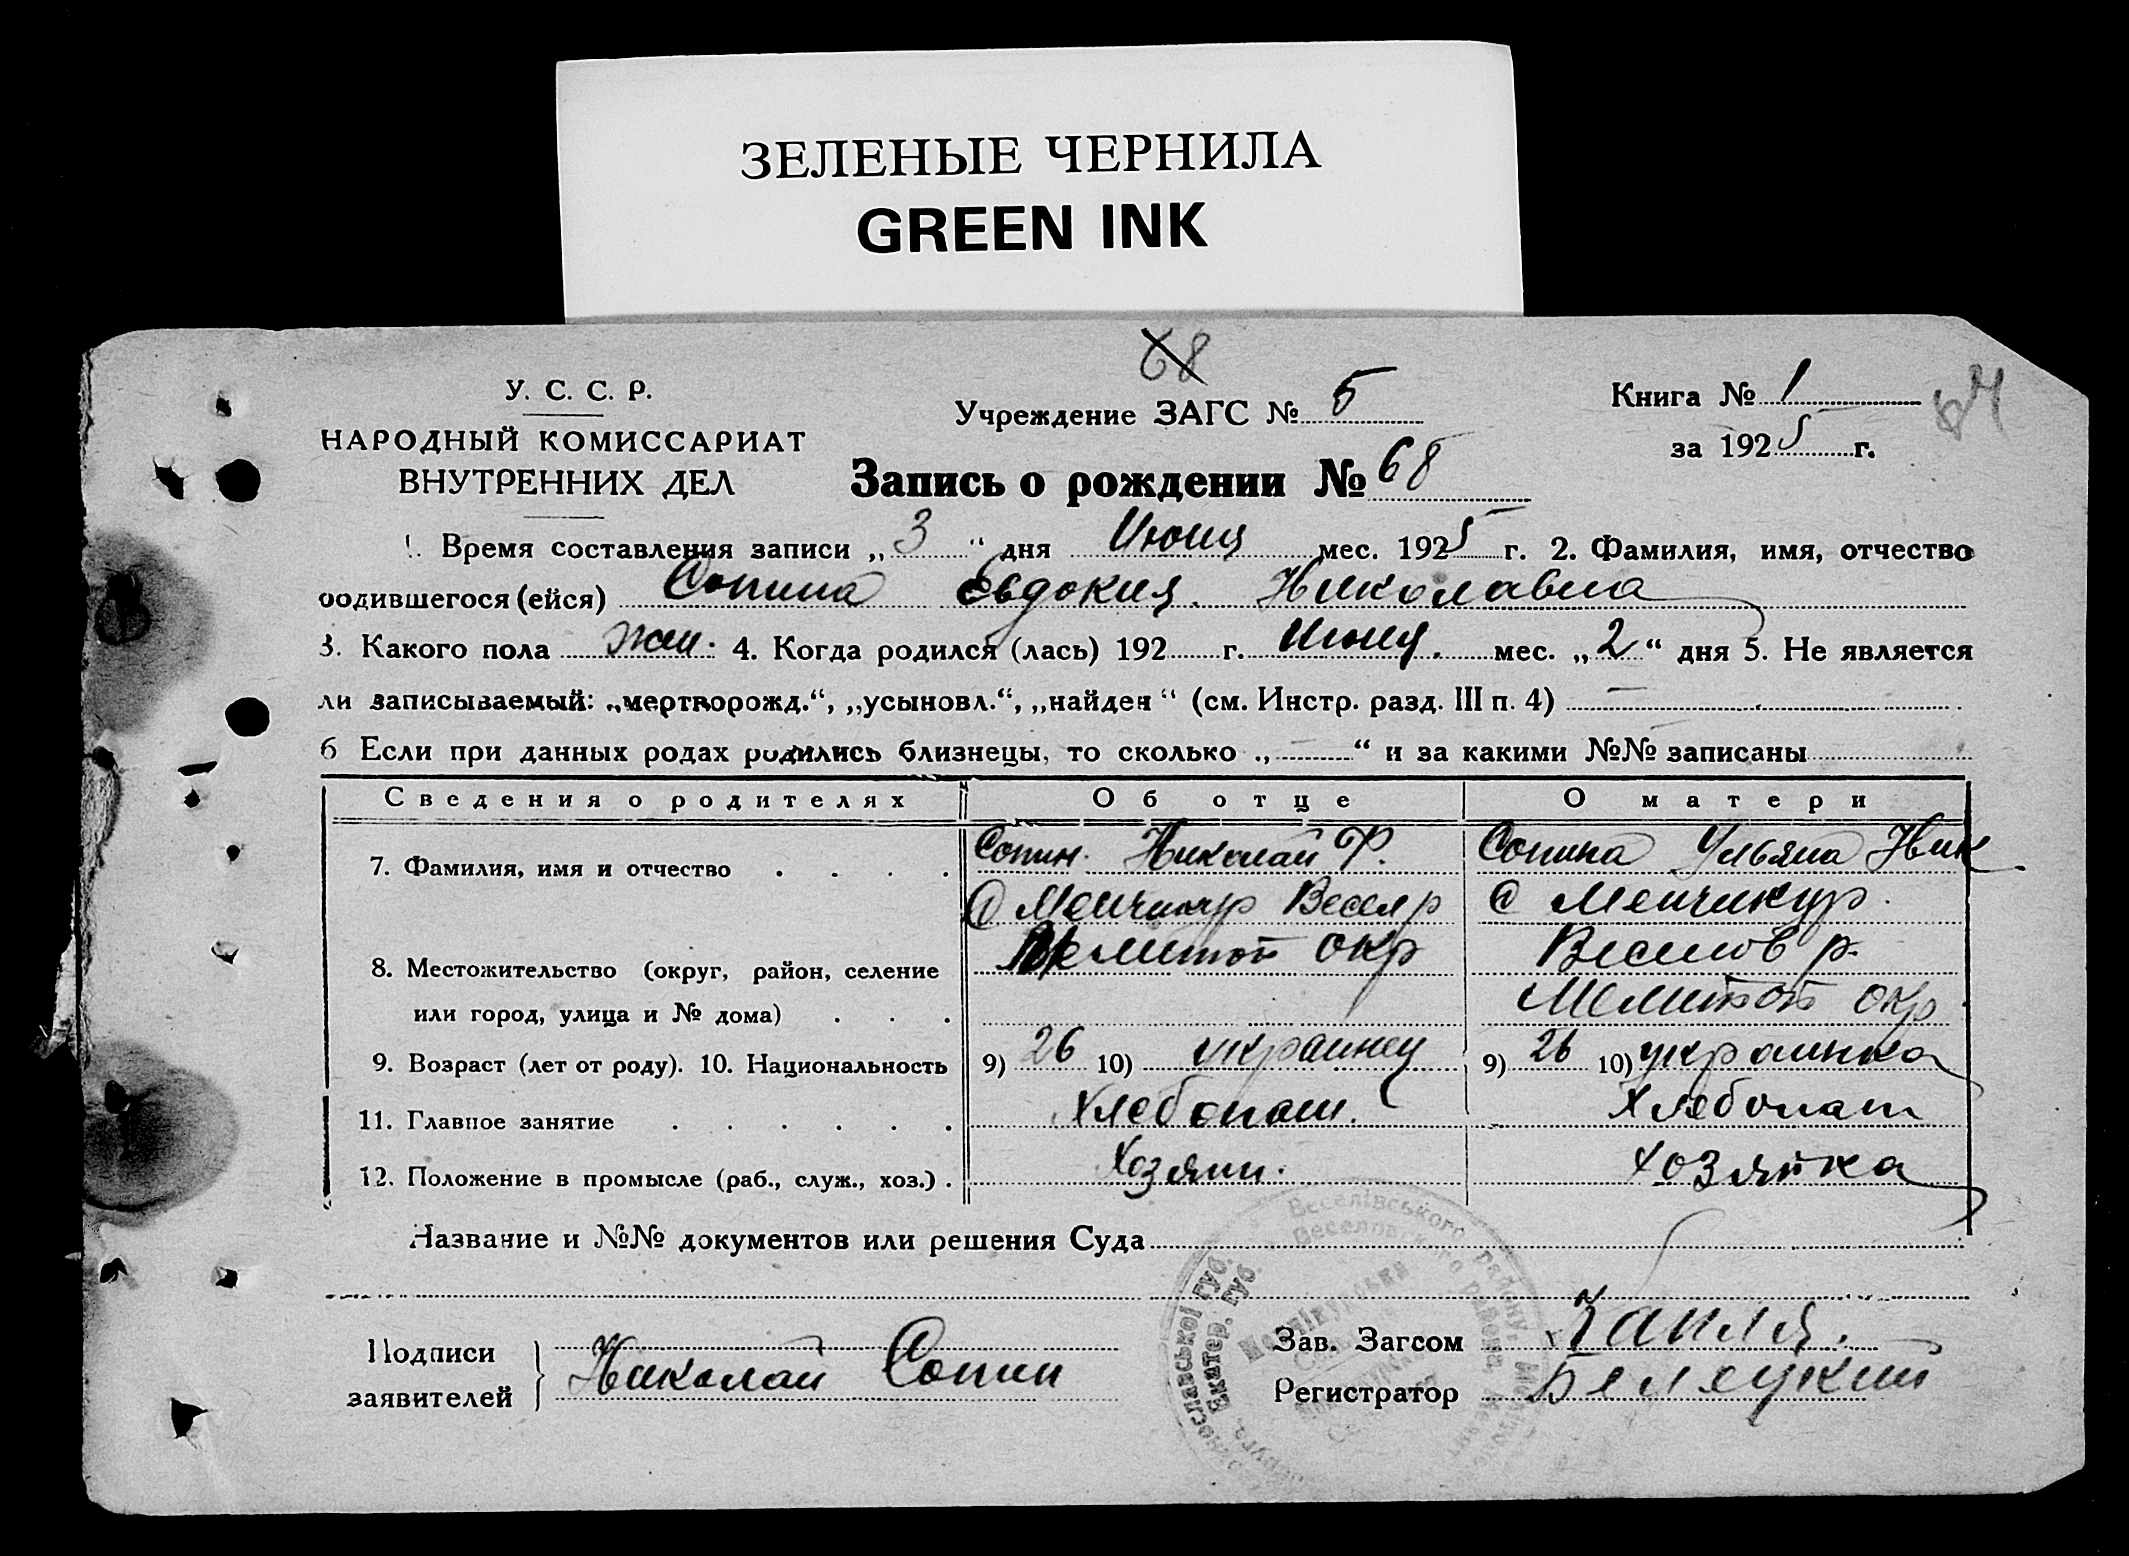 ЗЕЛЕНЫЕ ЧЕРНИЛА
GREEN INK
68
У. С. С. Р.
НАРОДНЫЙ КОМИССАРИАТ
ВНУТРЕННИХ ДЕЛ
Учреждение ЗАГС № 5
Книга № 1
за 1925 г.
Запись о рождении № 68
1. Время составления записи „3“ дня Июня мес. 1925 г. 2. Фамилия, имя, отчество
родившегося (ейся) Сопина Евдокия Николавна
3. Какого пола жен. 4. Когда родился (лась) 192 г. Июня мес. „2“ дня 5. Не является
ли записываемый: „мертворожд.“, „усыновл.“, „найден“ (см. Инстр. разд. III п. 4) —
6 Если при данных родах родились близнецы, то сколько „—“ и за какими №№ записаны
Сведения о родителях Об отце О матери
7. Фамилия, имя и отчество Сопин Николай Ф. Сопина Ульяна Ник
С Менчикур Весел р С Менчикур
8. Местожительство (округ, район, селение Мелитоп окр Веселов р.
или город, улица и № дома) Мелитоп окр
9. Возраст (лет от роду). 10. Национальность 9) 26 10) украинец 9) 26 10) украинка
11. Главное занятие Хлебопаш. Хлебопаш
12. Положение в промысле (раб., служ., хоз.) Хозяин. хозяйка
Название и №№ документов или решения Суда
Веселівського району
Веселовского района
Екатер. губ.
Подписи
заявителей
Николай Сопин
Зав. Загсом Капля.
Регистратор Белецкий